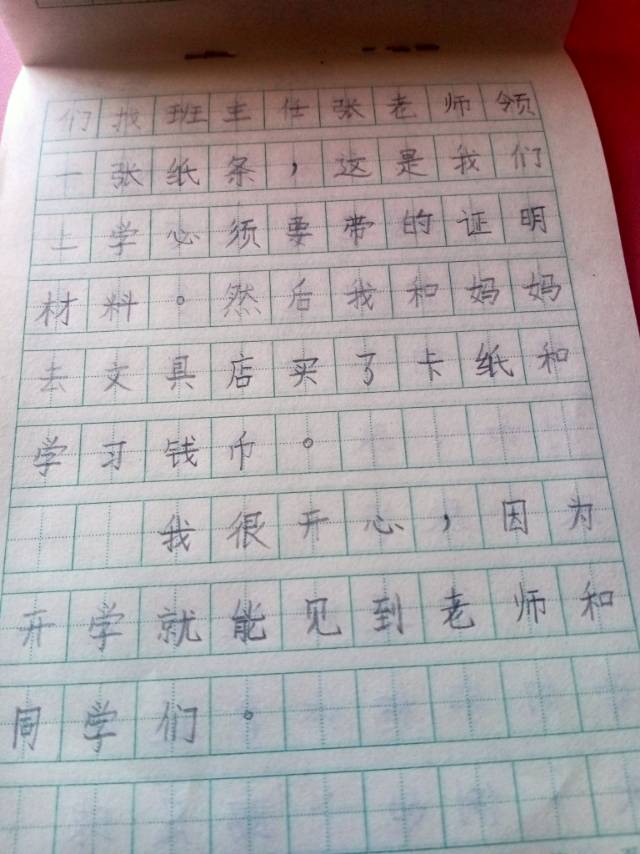 们找班主任张老师领
一张纸条，这是我们
上学必须要带的证明
材料。然后我和妈妈
去文具店买了卡纸和
学习钱币。
我很开心，因为
开学就能见到老师和
同学们。